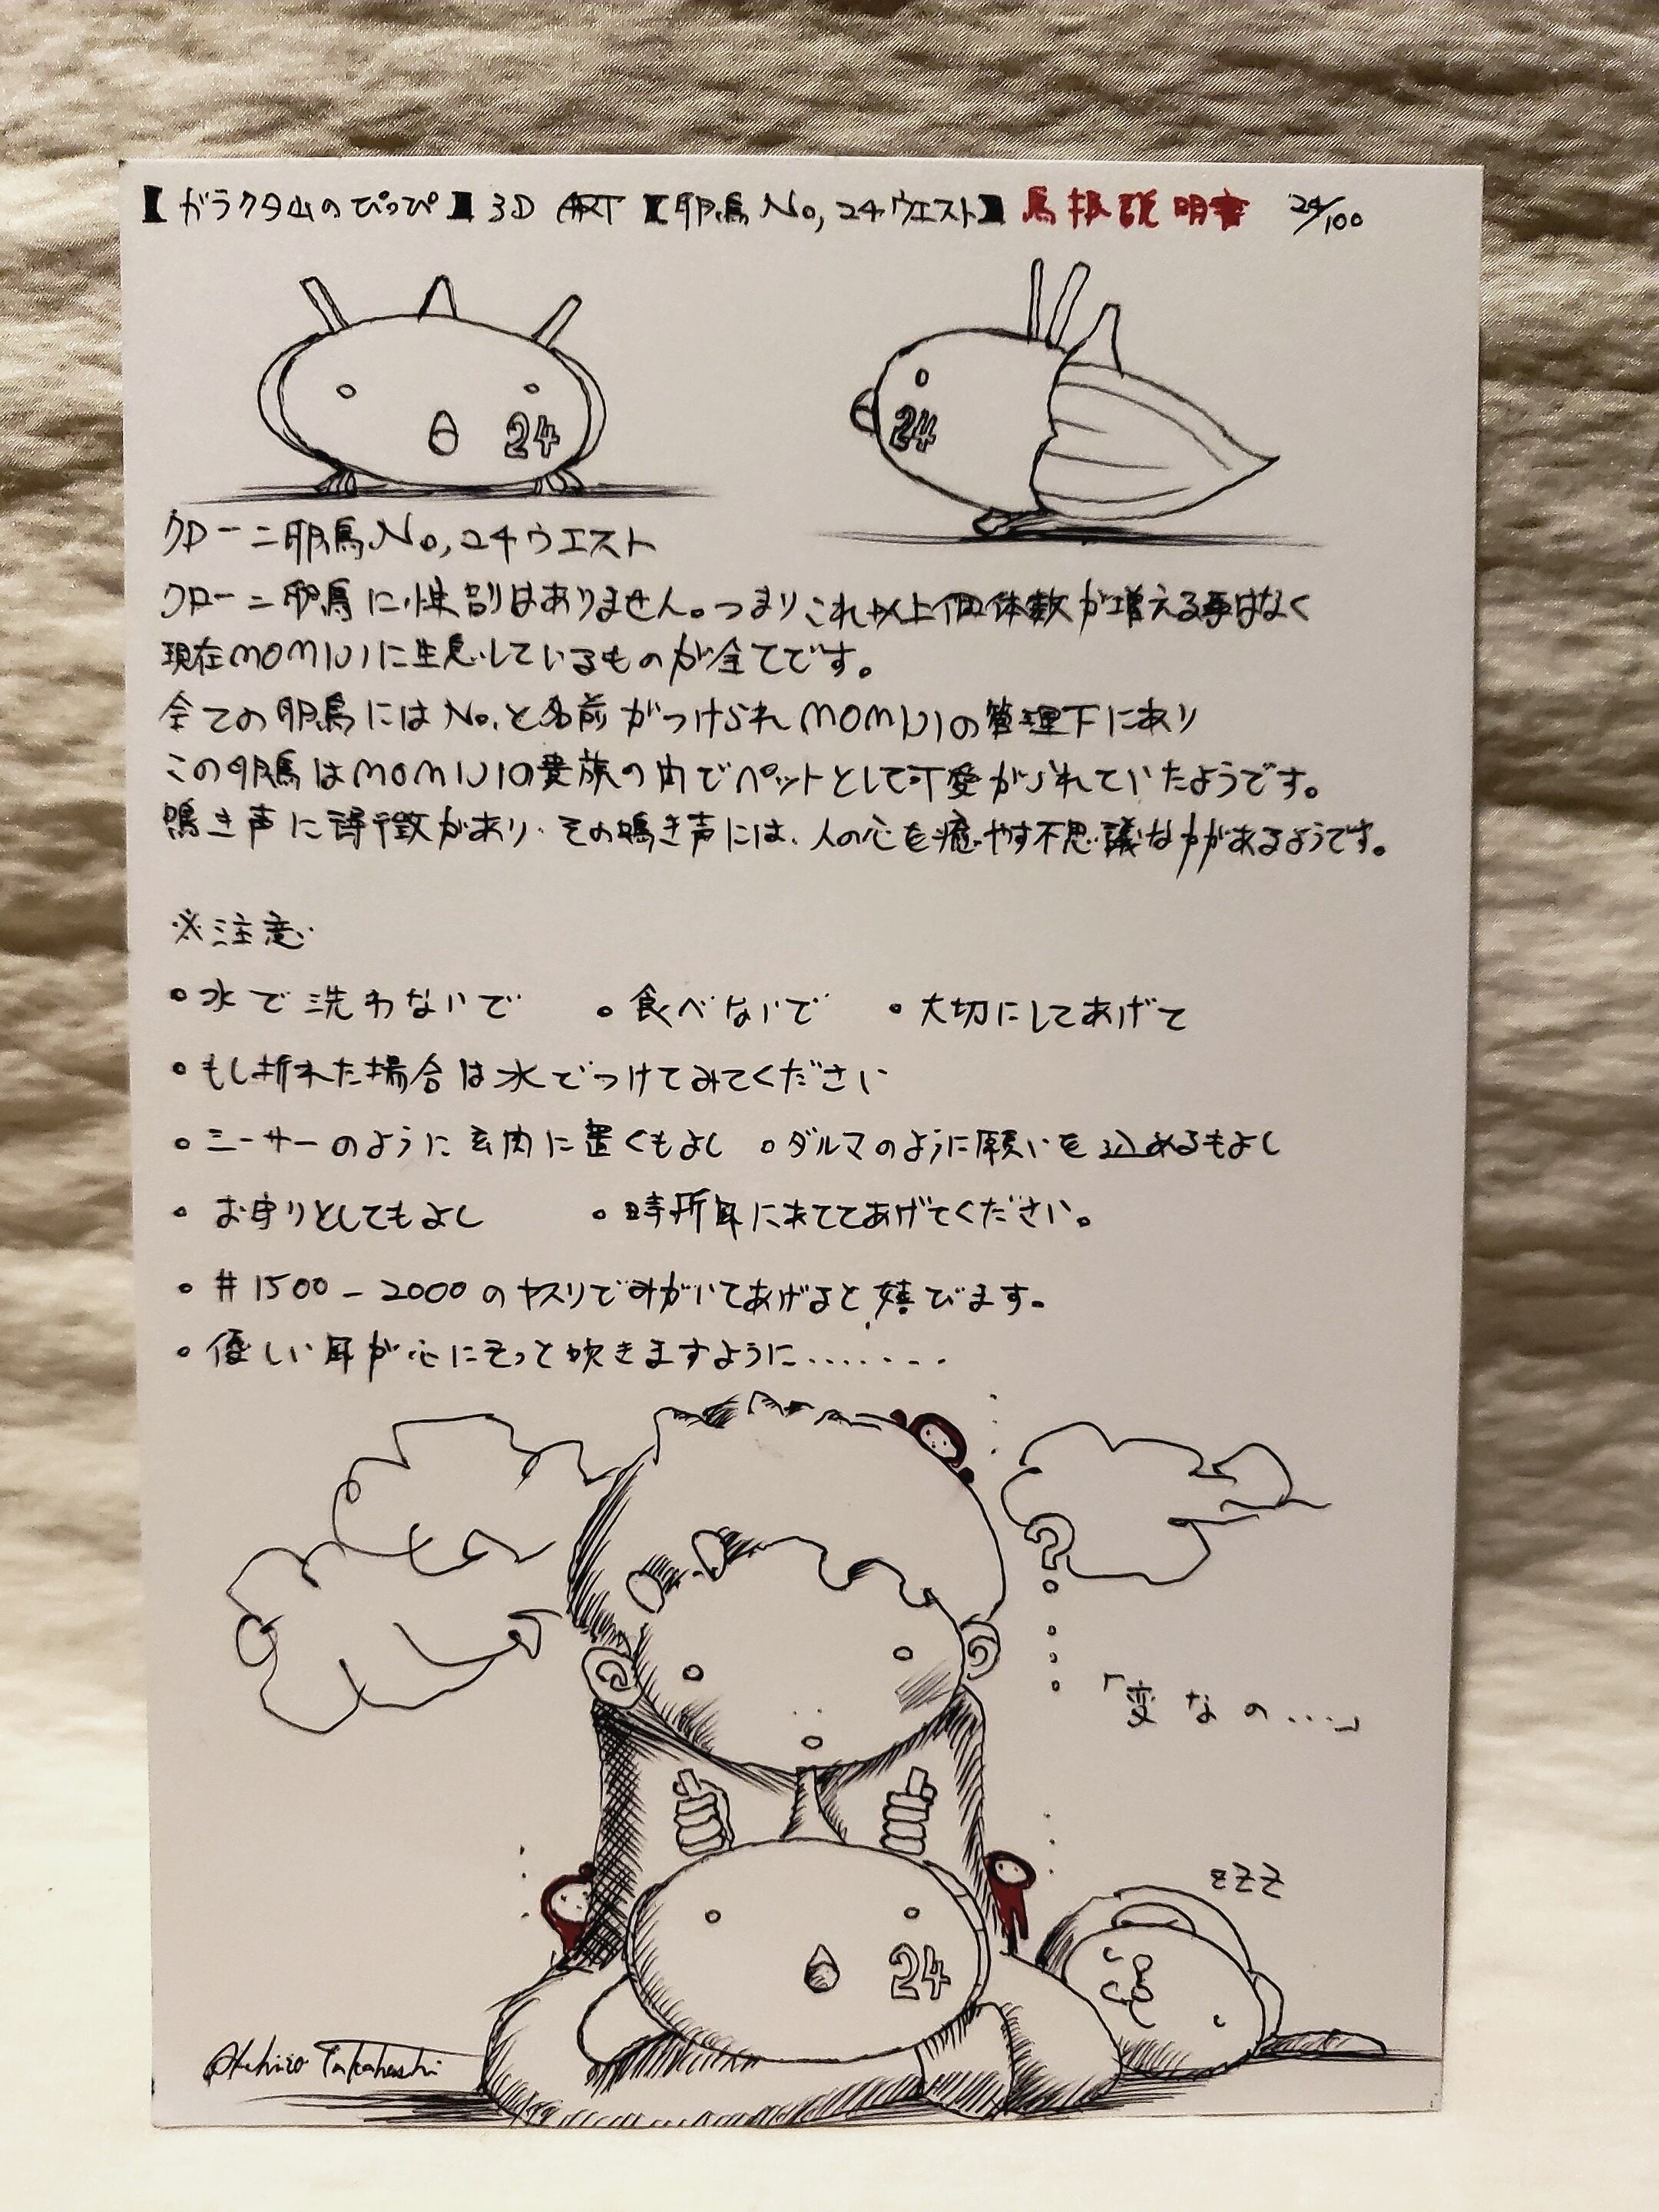 【ガラクタ山のぴっぴ】3D ART【卵鳥No,24ウエスト】鳥扱説明書 24/100
24
24
クローン卵鳥No,24ウエスト
クローン卵鳥に性別はありません。つまりこれ以上個体数が増える事はなく
現在MOMIJIに生息しているものが全てです。
全ての卵鳥にはNo.と名前がつけられMOMIJIの管理下にあり
この卵鳥はMOMIJIの貴族の内でペットとして可愛がられていたようです。
鳴き声に特徴があり、その鳴き声には、人の心を癒やす不思議な力があるようです。
※注意
・水で洗わないで ・食べないで ・大切にしてあげて
・もし折れた場合は水でつけてみてください
・シーサーのように玄関に置くもよし ・ダルマのように願いを込めるもよし
・お守りとしてもよし ・時折耳にあててあげてください。
・#1500-2000のヤスリでみがいてあげると喜びます。
・優しい耳が心にそっと吹きますように.......
?
「変なの...」
zzz
24
Akihiro Takahashi